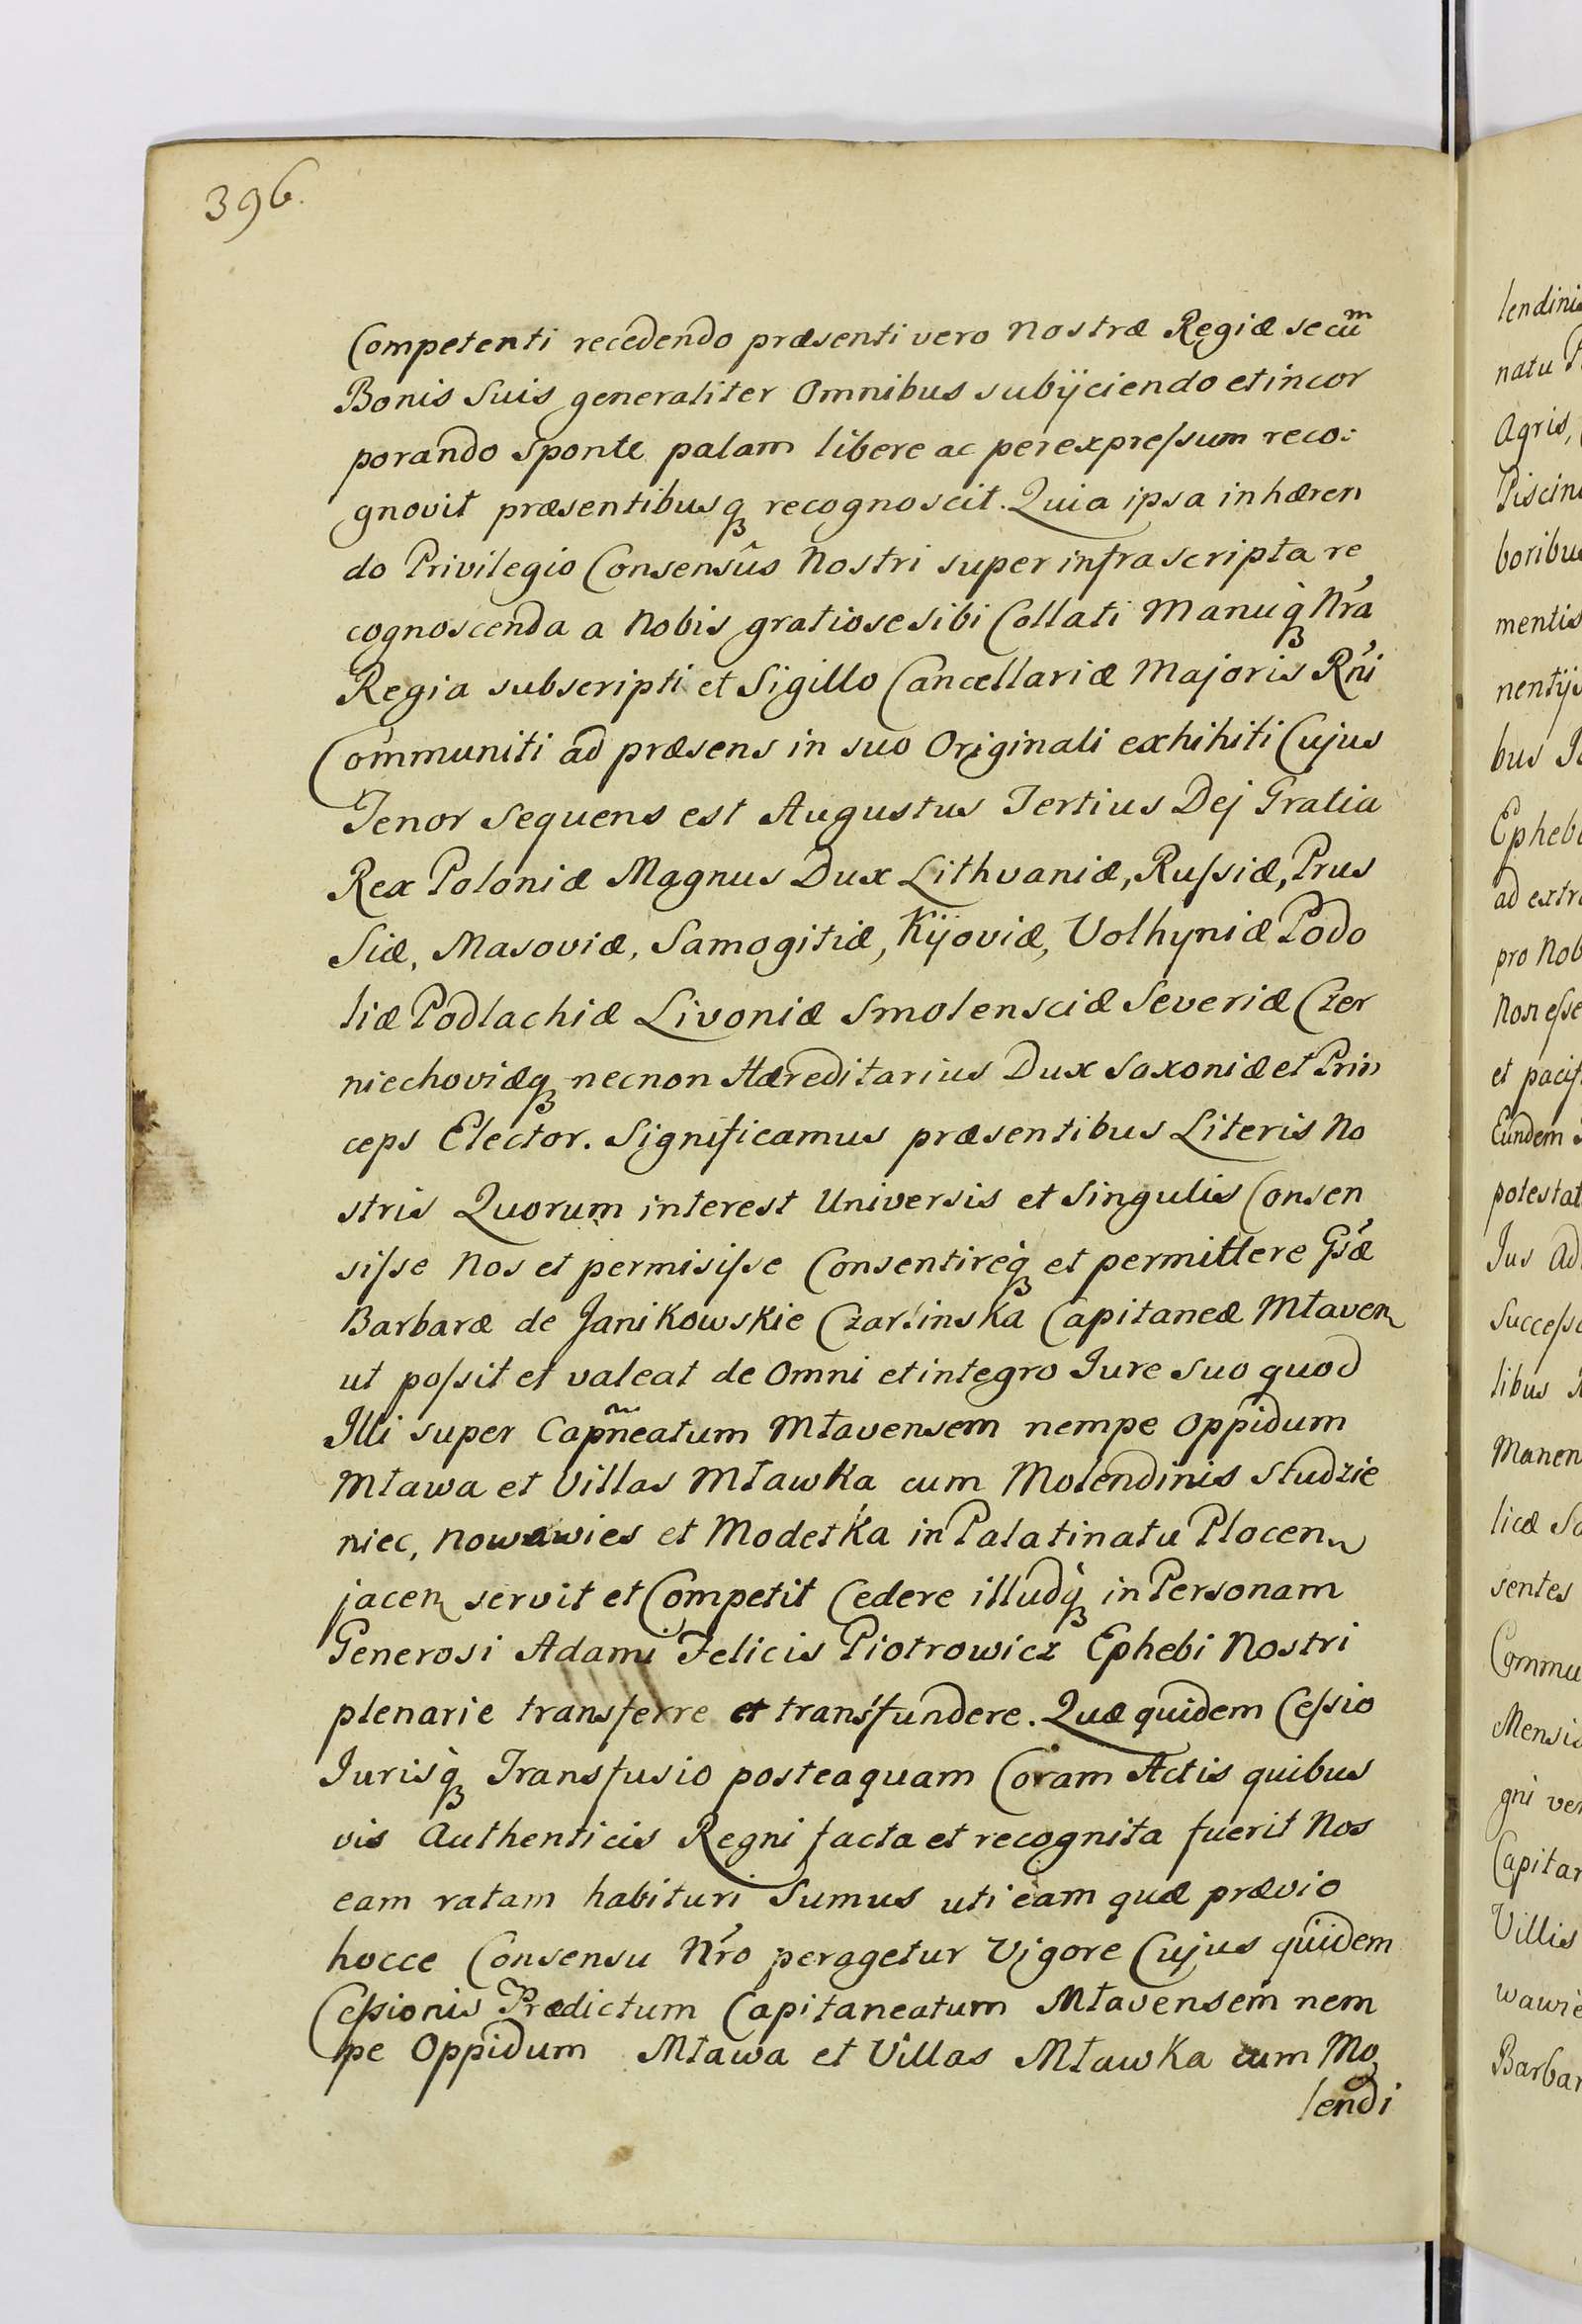 396.
Competenti recedendo præsenti vero Nostræ Regiæ se cum
Bonis Suis generaliter Omnibus subijciendo et incor
porando sponte palam libere ac per expreſsum reco:
gnovit præsentibusqȝ recognoscit. Quia ipsa inhæren
do Privilegio Consensûs Nostri super infrascripta re
cognoscenda a Nobis gratiose sibi Collati Manuqȝ Nr̃a
Regia subscripti et Sigillo Cancellariæ Majoris Rñi
Communiti ad præsens in suo Originali exhihiti Cujus
Tenor Sequens est Augustus Tertius Dej Gratia
Rex Poloniæ Magnus Dux Lithvaniæ, Ruſsiæ, Prus
Siæ, Masoviæ, Samogitiæ, Kijoviæ, Volhyniæ Podo
liæ Podlachiæ Livoniæ Smolensciæ Severiæ Czer
niechoviæqȝ necnon Hæreditarius Dux Saxoniæ et Prin
ceps Elector. Significamus præsentibus Literis No
stris Quorum interest Universis et Singulis Consen
siſse Nos et permisiſse Consentireqȝ et permittere Gsæ
Barbaræ de Janikowskie Czarlinska Capitaneæ Mławen
ut poſsit et valeat de Omni et integro Jure Suo quod
Illi super Capñeatum Młavensem nempe Oppidum
Mława et Villas Mławka cum Molendinis Studzie
niec, Nowawies et Modełka in Palatinatu Plocen
jacen servit et Competit Cedere illudqȝ in Personam
Generosi Adami Felicis Piotrowicz Ephebi Nostri
plenarie transferre et transfundere. Quæ quidem Ceſsio
Jurisqȝ Transfusio posteaquam Coram Actis quibus
vis Authenticis Regni facta et recognita fuerit Nos
eam ratam habituri Sumus uti eam quæ prævio
hocce Consensu Nr̃o peragetur Vigore Cujus quidem
Ceſsionis Prædictum Capitaneatum Młavensem nem
pe Oppidum Mława et Villas Mławka cum Mo
lendi
lendini
natu P
Agris,
Piscin
boribu
mentis
nentijs
bus
Epheb
ad extr
pro Nob
Non eſse
et pacif
Eundem
potestat
Jus Ad
Succeſs
libus
Manen
licæ So
sentes
Commu
Mensis
gni ve
Capitan
Villis
wawie
Barbar